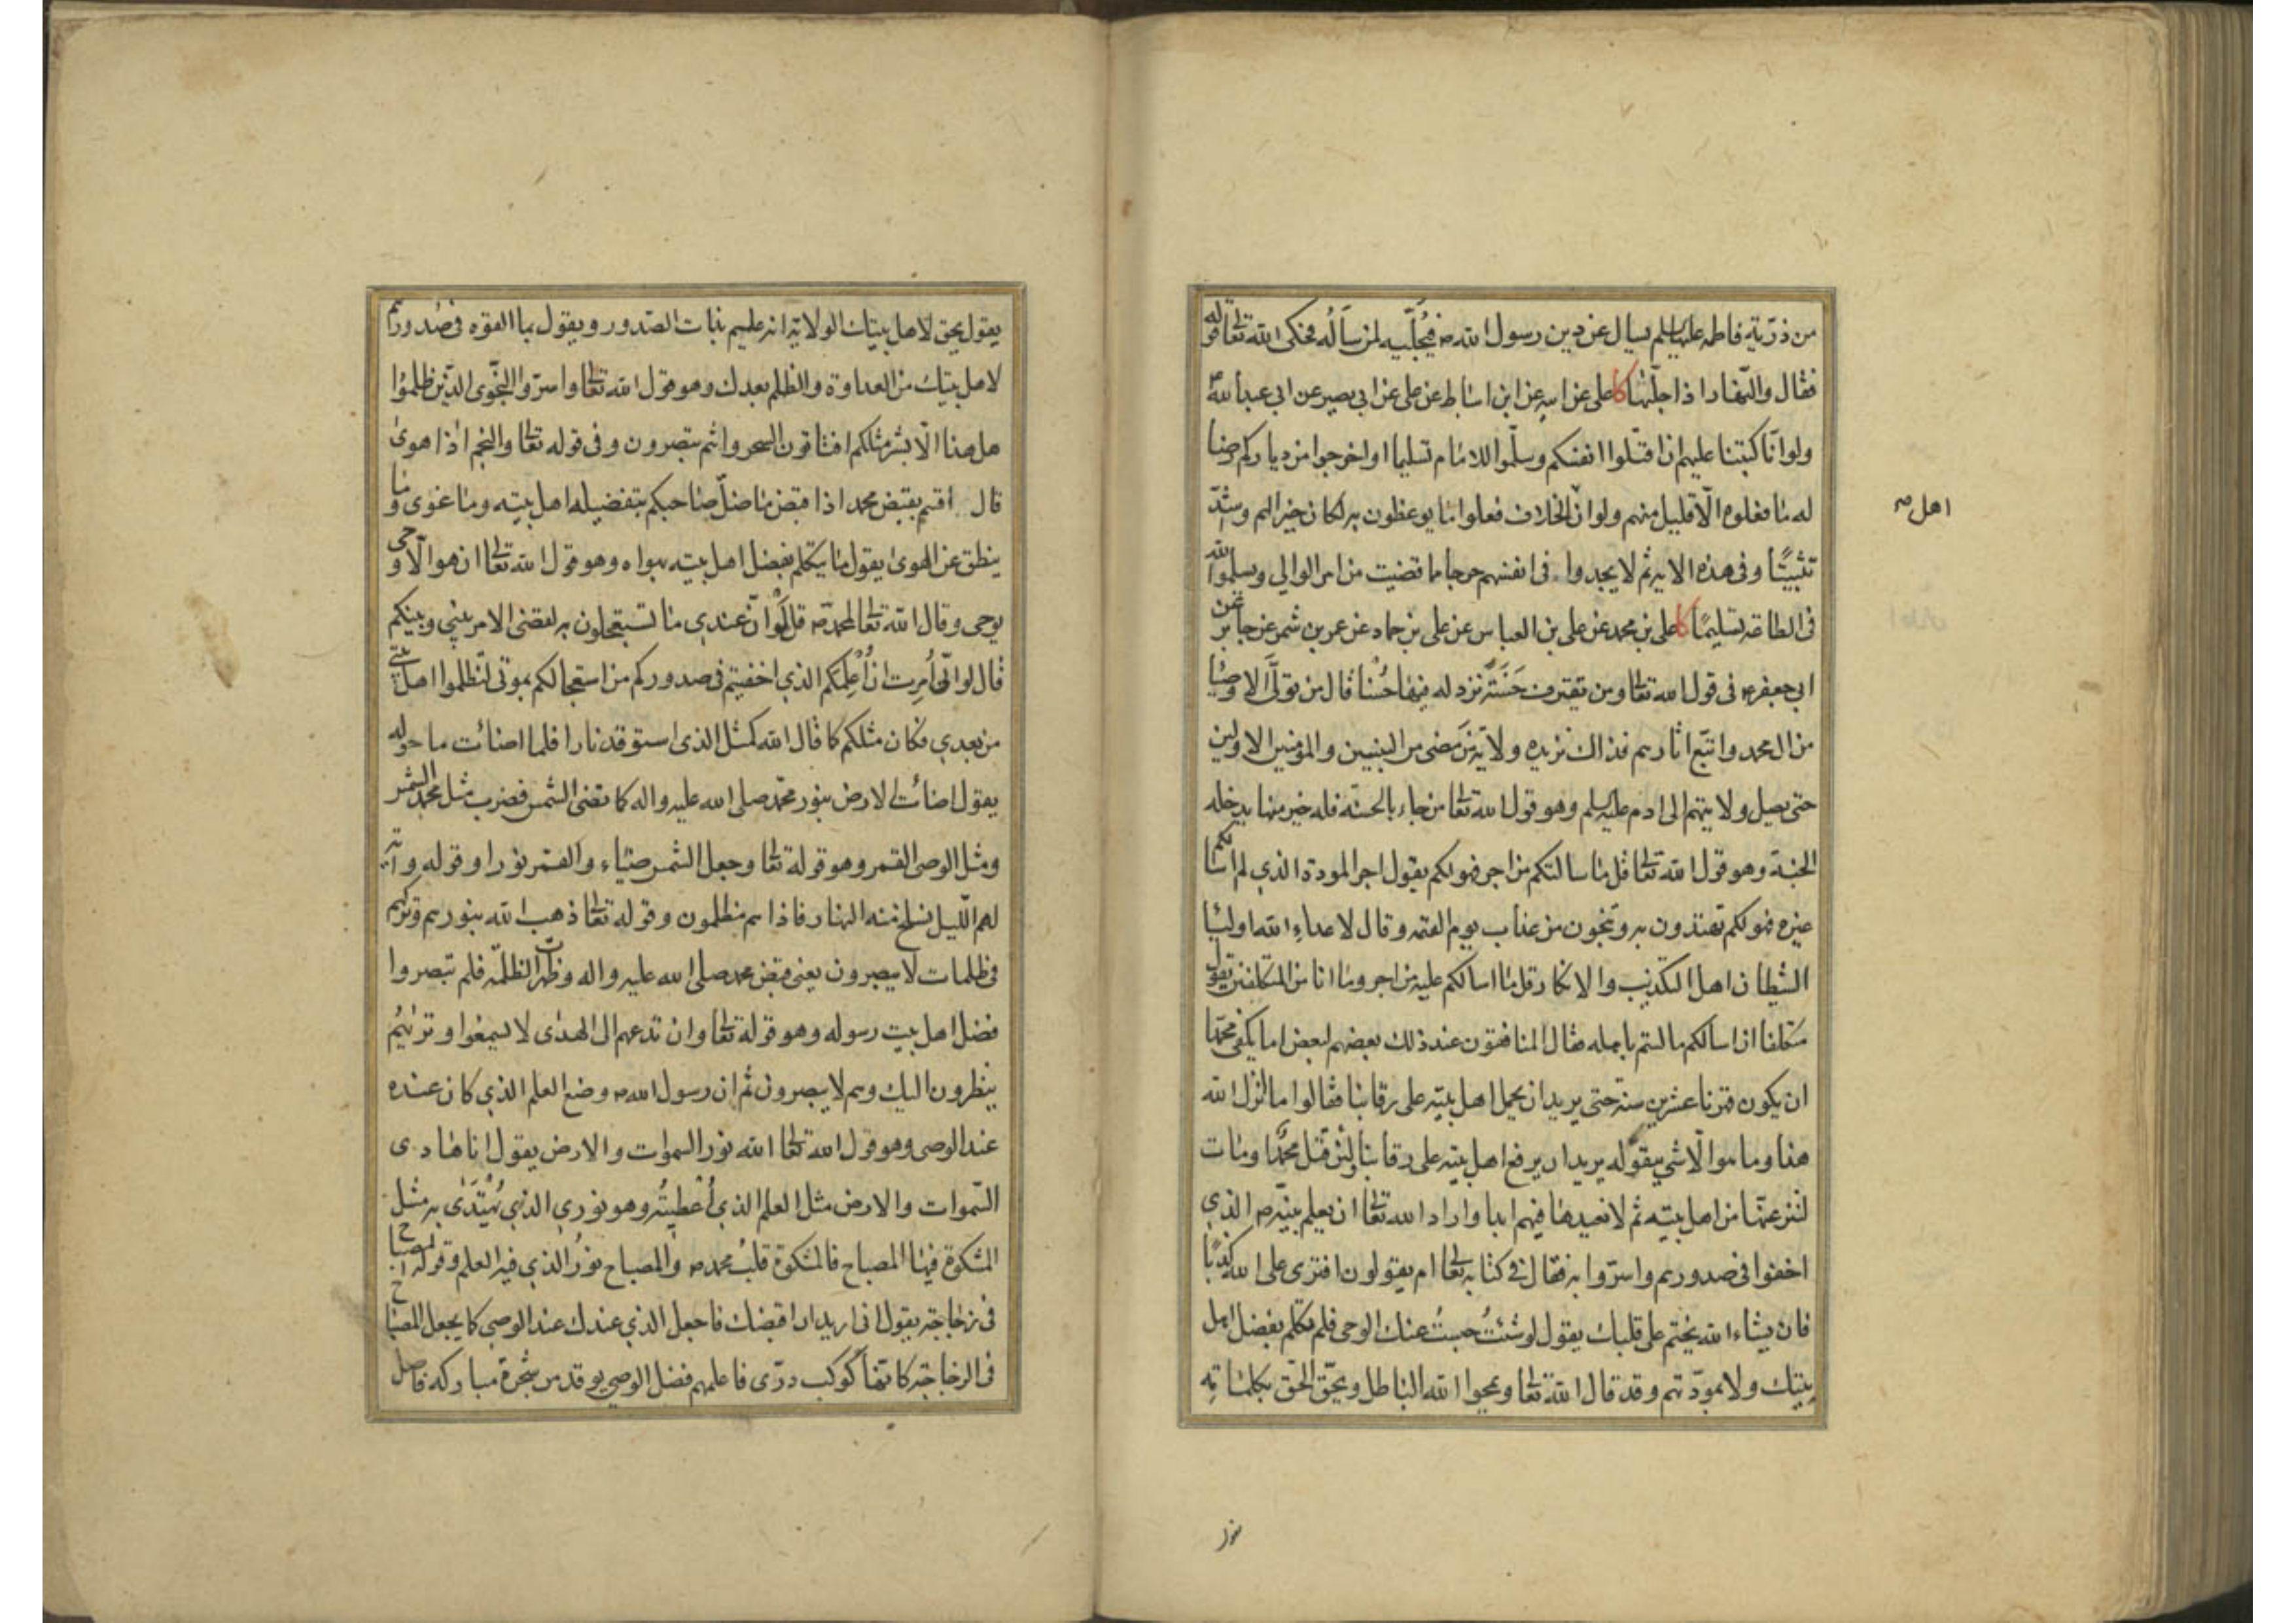 من ذرّية فاطمه عليها السلم يسال عن دين رسول الله ص فيُجلّيه لمن سأله فحكى الله تعالى قوله
فقال والنّهار اذا جلّيها كا على عن ابيه عن ابن اسباط عن على عن ابى بصير عن ابى عبد الله ع
ولو انّا كتبنا عليهم ان اقتلوا انفسكم وسلّموا للامام تسليما او اخرجوا من دياركم رضا
له ما فعلوه الّا قليل منهم ولو ان الخلاف فعلوا ما يوعظون به لكان خيرا لهم واشدّ
تثبيتًا وفى هذه الايه ثم لا يجدوا فى انفسهم حرجا مما قضيت من امر الوالى ويسلموا لله
فى الطاعه تسليمًا كا على بن محمد عن على بن العباس عن على بن حماد عن عمر بن شمر عن جابر عن
ابى جعفر ع فى قول الله تعالى ومن يقترف حَسَنَةً نزد له فيها حُسْنا قال من تولّى الاوصيا
من ال محمد واتّبع اثارهم فذاك نزيده ولاية مَن مَضى من النبيين والمؤمنين الاولين
حتى يصل ولايتهم الى ادم عليه السلم وهو قول الله تعالى من جاء بالحسنه فله خير منها يدخله
الجنة وهو قول الله تعالى قل ما سالتكم من اجر فهو لكم يقول اجر المودة الذي لم اسالكم
غيره فهو لكم تهتدون به وتنجون من عذاب يوم القيمه وقال لاعداءِ الله اوليا
الشيطان اهل التكذيب والانكار قل ما اسالكم عليه من اجر وما انا من المتكلفين يقول
متكلفا ان اسالكم ما لستم باهله فقال المنافقون عند ذلك بعضهم لبعض اما يكفى محمّدا
ان يكون قهرنا عشرين سنة حتى يريد ان يحمل اهل بيته على رقابنا فقالوا ما انزل الله
هذا وما هو الّا شي يتقوّله يريد ان يرفع اهل بيته على رقابنا ولئن قتل محمّد او مات
لننزعنّها من اهل بيته ثم لا نعيدها فيهم ابدا واراد الله تعالى ان يعلم نبيّه ص الذي
اخفوا فى صدورهم واسرّوا به فقال فى كتابه تعالى ام يقولون افترى على الله كذبًا
فان يشاء الله يختم على قلبك يقول لو شئتُ حبستُ عنك الوحى فلم تكلم بفضل اهل
بيتك ولا بمودّتهم وقد قال الله تعالى ويمحوا الله الباطل ويحقّ الحقّ بكلماته
اهل ص
يقول يحق لاهل بيتك الولاية انه عليم بذات الصّدور ويقول بما القوه فى صدورهم
لاهل بيتك من العداوة والظلم بعدك وهو قول الله تعالى واسرّوا النجّوى الذّين ظلموا
هل هذا الّا بشر مثلكم افتاتون السحر وانتم تبصرون وفى قوله تعالى والنجم اذا هوى
قال اقسم بقبض محمد اذا قبض ما ضلّ صاحبكم بتفضيله اهل بيته وما غوى وما
ينطق عن الهوى يقول ما يتكلم بفضل اهل بيته بهواه وهو قول الله تعالى ان هو الّا وحى
يوحى وقال الله تعالى لمحمد ص قل لَوْ انّ عندى ما تستعجلون به لقضى الامر بينى وبينكم
قال لو انّى أُمِرت ان أُعْلِمكم الذي اخفيتم فى صدوركم من استعجالكم بموتى لتظلموا اهل بيتى
من بعدي فكان مثلكم كما قال الله كمثل الذى استوقد نارا فلما اضائت ما حوله
يقول اضائت الارض بنور محمّد صلى الله عليه واله كما تضئ الشمس فضرب مثل محمد الشمس
ومثل الوصى القمر وهو قوله تعالى وجعل الشمس ضياء والقمر نورا وقوله واية
لهم الّليل نسلخ منه النهار فاذا هم مظلمون وقوله تعالى ذهب الله بنورهم وتركهم
فى ظلمات لا يبصرون يعنى قبض محمد صلى الله عليه واله وظهرت الظلمه فلم تبصروا
فضل اهل بيت رسوله وهو قوله تعالى وان تدعهم الى الهدى لا يسمعوا وتريهم
ينظرون اليك وهم لا يبصرون ثم ان رسول الله ص وضع العلم الذي كان عنده
عند الوصى وهو قول الله تعالى الله نور السموات والارض يقول انا هادى
السّموات والارض مثل العلم الذي أُعْطِيتُه وهو نوري الذي يُهتَدَى به مثل
المشكوة فيها المصباح فالمشكوة قلبُ محمد ص والمصباح نورُ الذي فيه العلم وقوله المصباح
فى زجاجة يقول انى اريد ان اقبضك فاجعل الذي عندك عند الوصي كما يجعل المصباح
فى الزجاجة كانّها كوكب درّى فاعلمهم فضل الوصي يوقد من شجرة مباركه فاصل